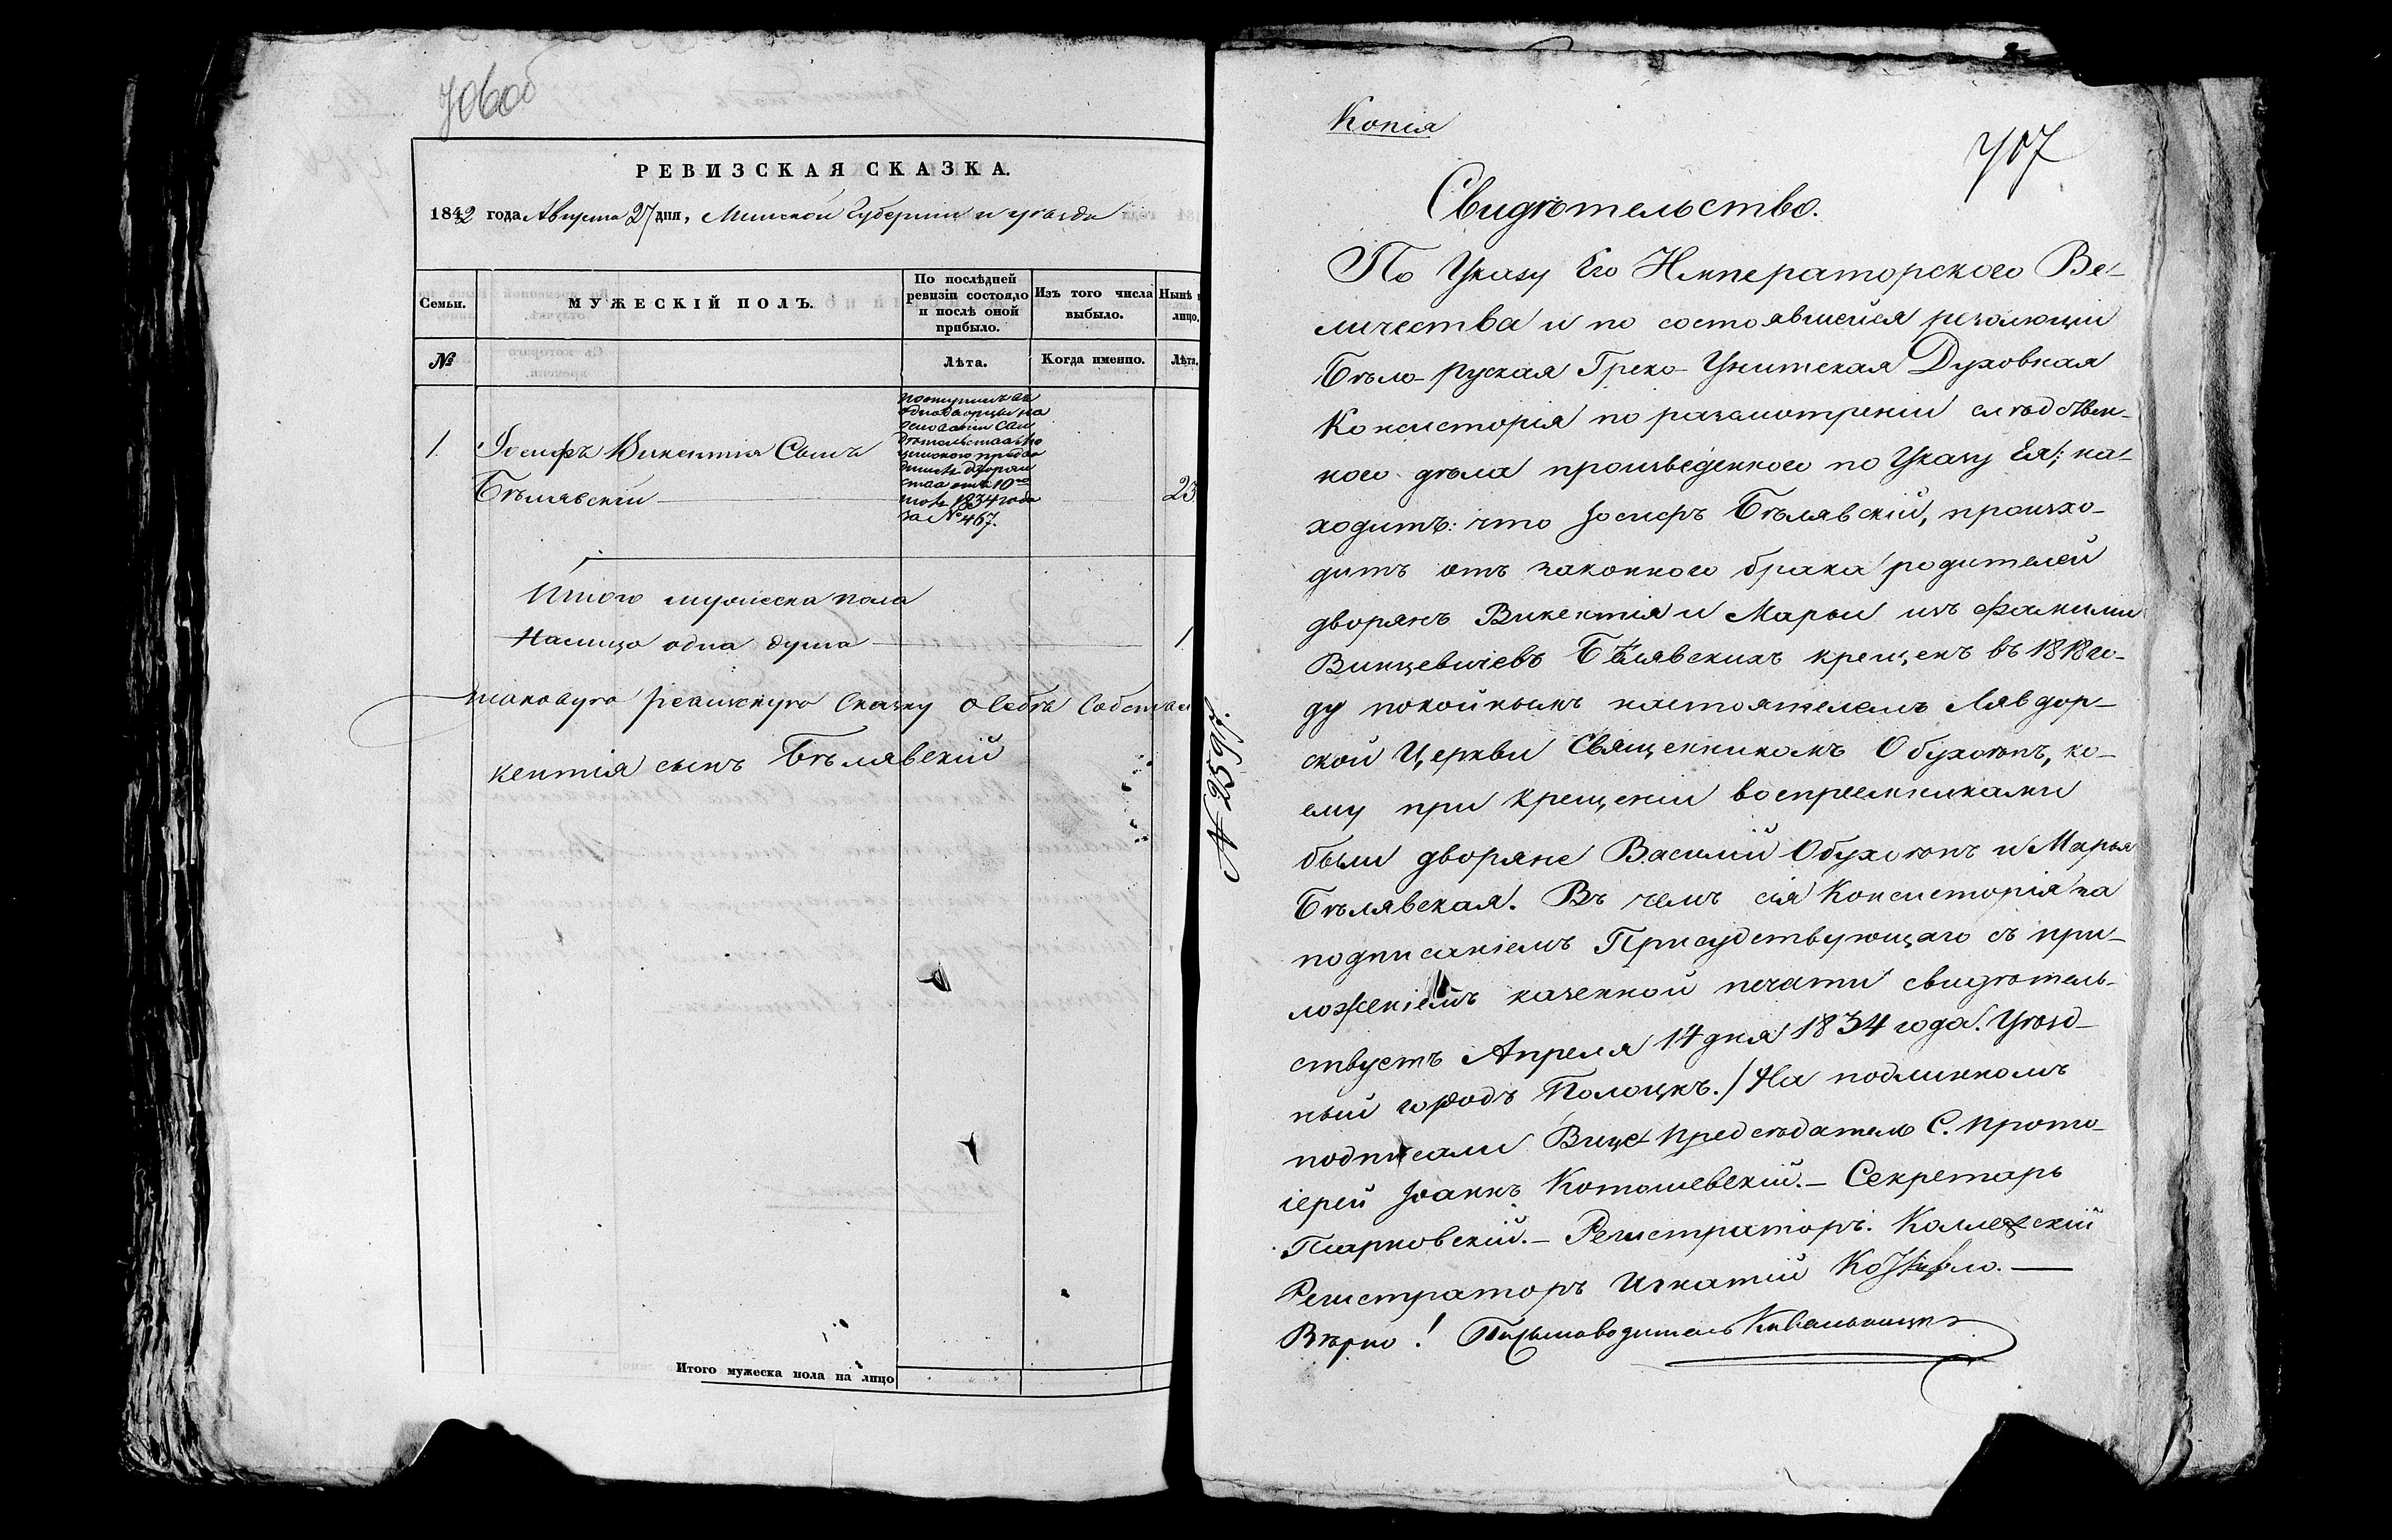 706об
РЕВИЗСКАЯ СКАЗКА.
1842 года Августа 27 дня, Минской Губернии и уѣзда
Семьи.
МУЖЕСКІЙ ПОЛЪ.
По послѣдней ревизіи состояло и послѣ оной прибыло.
Изъ того числа выбыло.
Нынѣ
лицо.
№
Лѣта.
Когда именно.
Лѣта.
1. Іосифъ Викентія Сынъ
Бѣлявскій
23
поступилъ въ
однодворцы на
основаніи Сви
дѣтельства
предво
дителя дворян
ства отъ 10го
1834 года
за № 467.
Итого мужеска пола
Налицо одна душа 1
таковую ревизскую сказку о себѣ
кентія сынъ Бѣлявскій
Итого мужеска пола на лицо
№ 2597.
Копія
707
Свидѣтельство.
По Указу Его Императорского Ве-
личества и по состоявшейся резолюціи
Бѣло-руская Греко-Унитская Духовная
Консисторія по разсмотреніи слѣдствен-
ного дѣла произведенного по Указу Ея; на-
ходитъ: что Іосифъ Бѣлявскій, происхо-
дитъ отъ законного брака родителей
дворянъ Викентія и Марьи изъ фамиліи
Винцевичевъ Бѣлявскихъ крещенъ въ 1818 го-
ду покойнымъ настоятелемъ Лявдор-
ской Церкви Священникомъ Обухомъ, ко-
ему при крещеніи воспреемниками
были дворяне Василій Обухомъ и Марья
Бѣлявская. Въ чемъ сія Консисторія за
подписаніемъ Присудствующаго съ при-
ложеніемъ казенной печати свидѣтель-
ствуетъ Апреля 14 дня 1834 года. Уѣзд-
ный городъ Полоцкъ. / На подлинномъ
подписали Вице Предсѣдатель С. Прото-
іерей Іоаннъ Конюшевскій. — Секретарь
Піарковскій. — Регистраторъ. Коллежскій
Регистраторъ Игнатій
Вѣрно! Письмоводитель